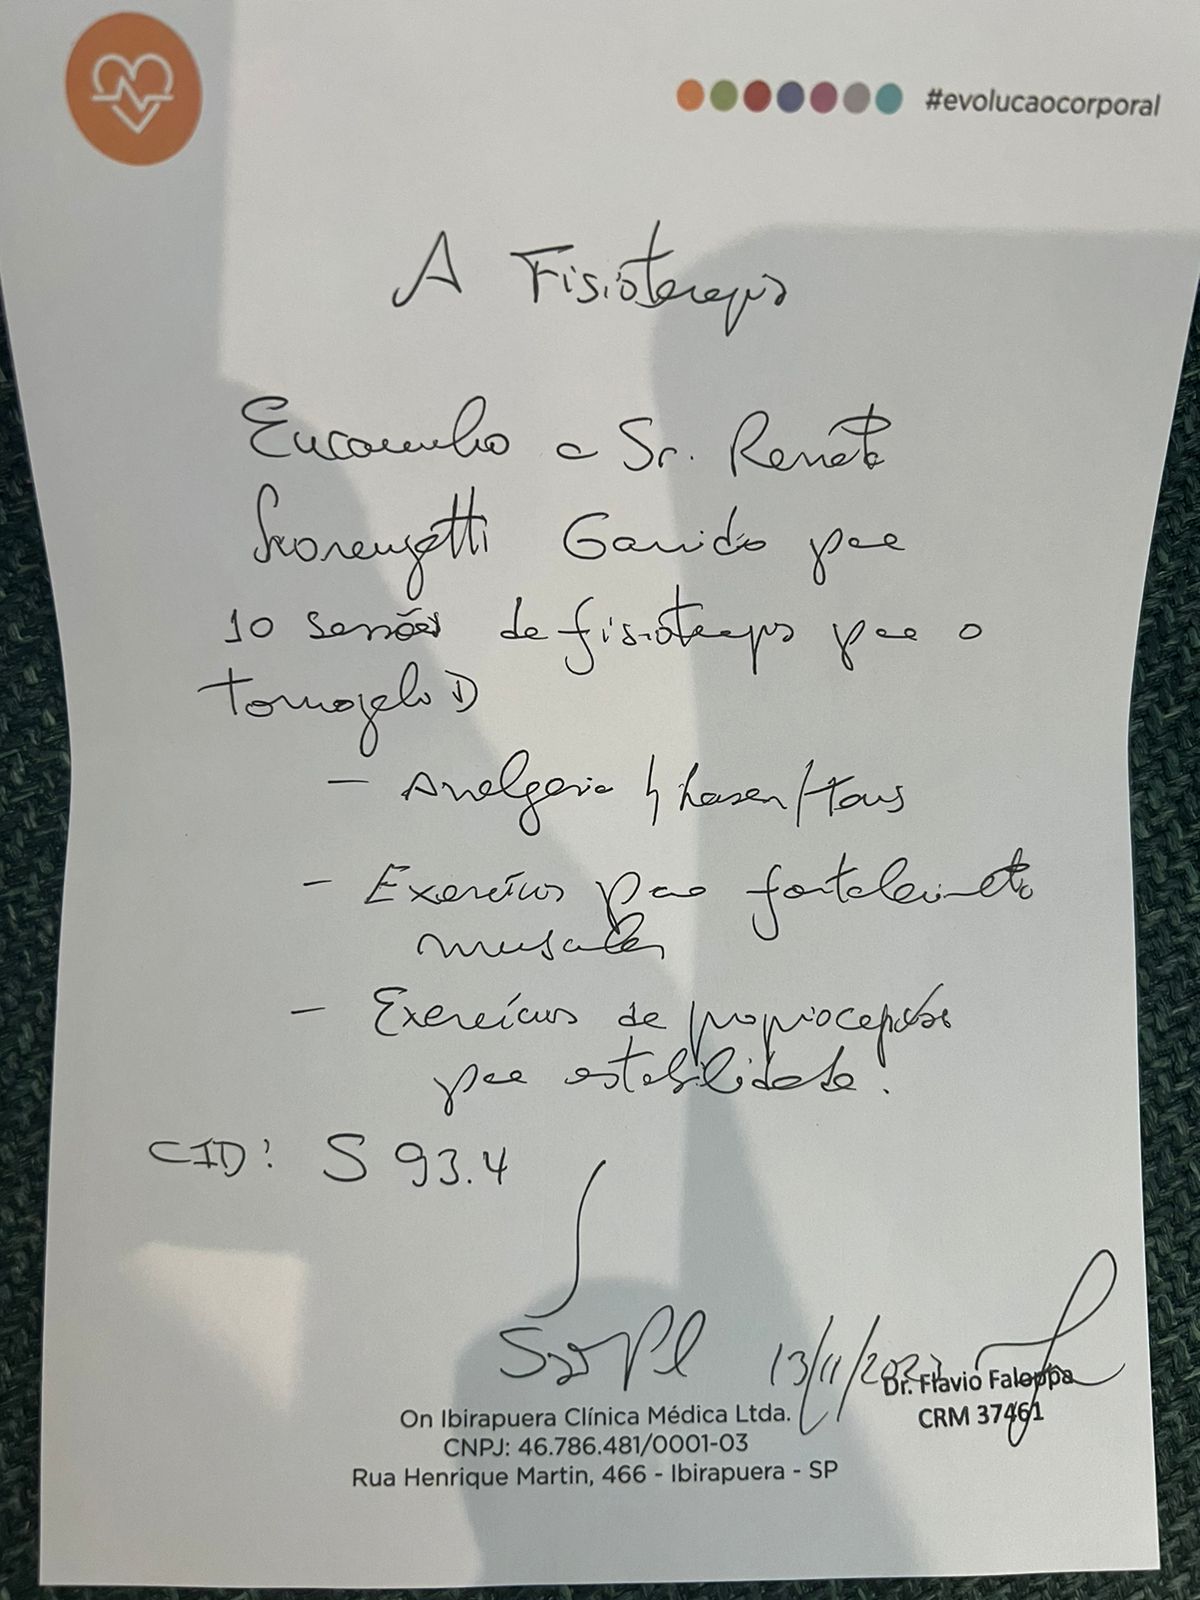 #evolucaocorporal
A Fisioterapia
Encaminho a Sr. Renata
Garrido para
10 sessões de fisioterapia para o
tornozelo D
- Analgesia c/ Laser/tens
- Exercícios para fortalecimento
muscular
- Exercícios de propriocepção
para estabilidade.
CID: S 93.4
São Paulo 13/11/202
Dr. Flavio Faloppa
CRM 37461
On Ibirapuera Clínica Médica Ltda.
CNPJ: 46.786.481/0001-03
Rua Henrique Martin, 466 - Ibirapuera - SP